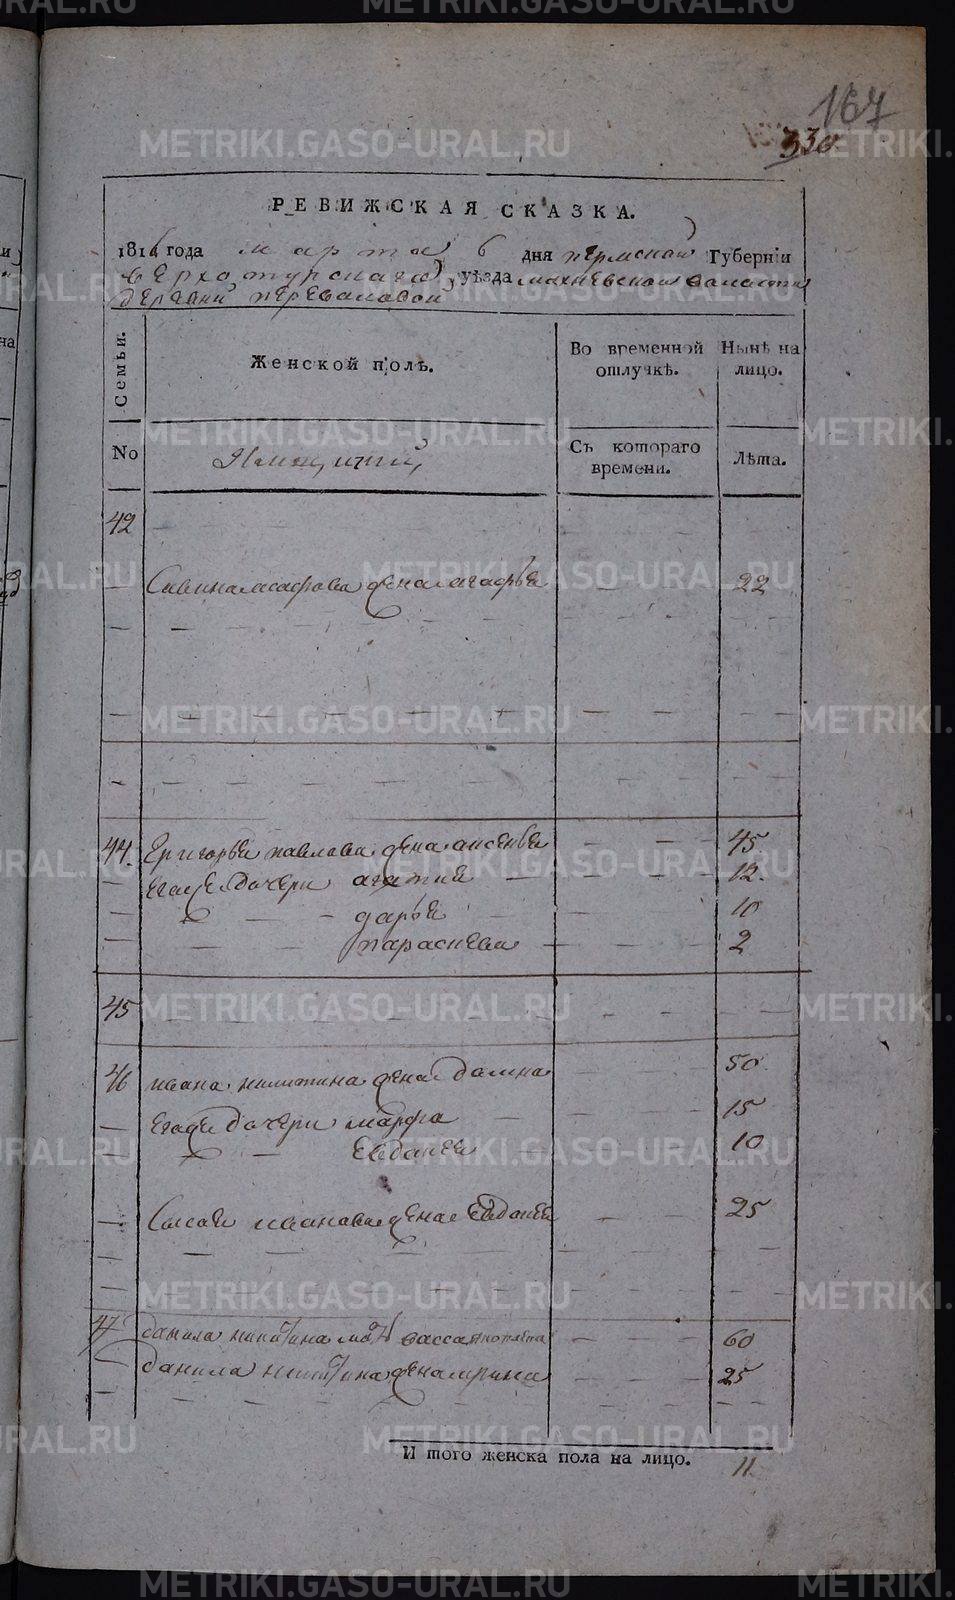 167
330
РЕВИЖСКАЯ СКАЗКА.
1816 года марта 6 дня пермской Губернїи
верхотурскаго уѣзда махневской волости
деревни переваловой
Семьи.
Женской полъ.
Во временной отлучкѣ.
Нынѣ на лицо.
No
Съ котораго времени.
Лѣта.
42
Савина жена агафья 22
44. Григорья павлова жена аксенья 45.
дочери агафия 12.
дарья 10
параскева 2
45
46 ивана никитина жена 50.
дочери марфа 15
евдокея 10
ивановa жена евдокея 25
47 данила никитина васса 60
данила никитина жена ирина 25
И того женска пола на лицо. 11
METRIKI.GASO-URAL.RU